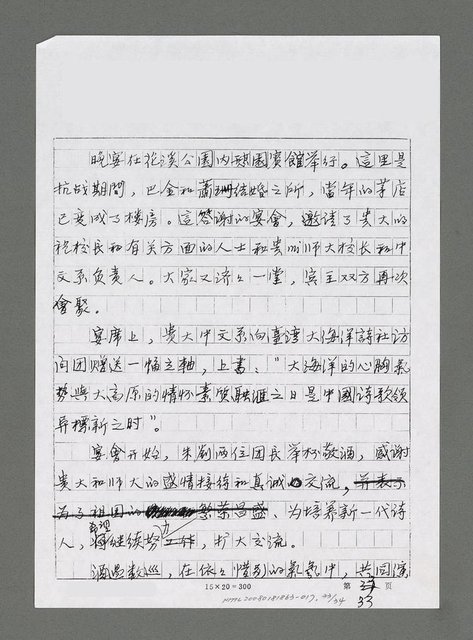 晚宴在花溪公園内碧園賓館举行。這里是
抗战期間，巴金和蕭珊结婚之所，當年的茅店
已变成了楼房。這答谢的宴會，邀请了貴大的
校長和有关方面的人士和贵州师大校长和中
文系负责人。大家又济々一堂，宾主双方再次
會聚。
宴席上，贵大中文系向臺湾大海洋詩社访
问团赠送一幅立軸，上書："大海洋的心胸氣
势與大高原的情怀素質融滙之日是中國诗歌领
异標新之时"。
宴會开始，朱劍两位团长举杯敬酒，感谢
贵大和师大的盛情接待和真诚交流，并表示
为了祖国的繁荣昌盛、为培养新一代诗
人，希望继续努力工作，扩大交流。
酒過数巡，在依々惜别的氣氛中，共同演
15×20=300 第 33 页
33